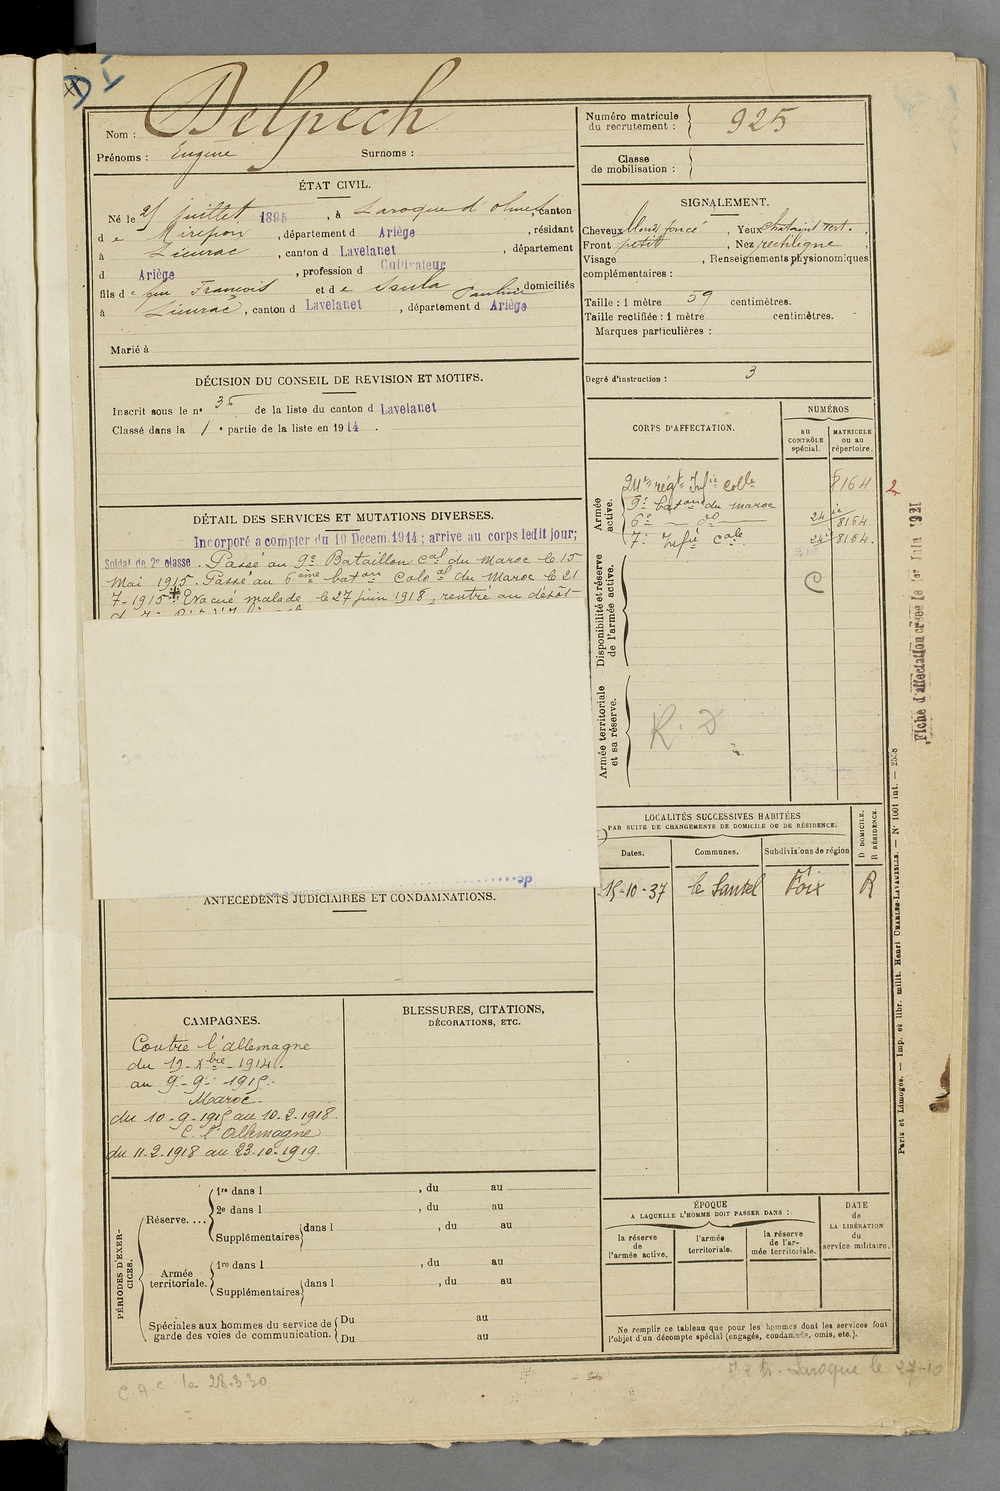 DI
Nom : Delpech
Prénoms : Eugène Surnoms :
Numéro matricule du recrutement : 925
Classe de mobilisation :
ÉTAT CIVIL.
Né le 25 juillet 1895, à Laroque d'Olmes, canton
de Mirepoix, département d Ariège, résidant
à Lieurac, canton d Lavelanet, département
d Ariège, profession d Cultivateur
fils de feu François et de Pauline domiciliés
à Lieurac, canton d Lavelanet, département d Ariège
Marié à
SIGNALEMENT.
Cheveux blond foncé, Yeux chatains vert.,
Front petit, Nez rectiligne,
Visage , Renseignements physionomiques
complémentaires :
Taille : 1 mètre 59 centimètres.
Taille rectifiée : 1 mètre centimètres.
Marques particulières :
Degré d'instruction : 3
DÉCISION DU CONSEIL DE REVISION ET MOTIFS.
Inscrit sous le n° 35 de la liste du canton d Lavelanet
Classé dans la 1e partie de la liste en 1914.
DÉTAIL DES SERVICES ET MUTATIONS DIVERSES.
Incorporé à compter du 19 Décem. 1914 ; arrivé au corps ledit jour;
Soldat de 2e classe. Passé au 9e Bataillon cal du Maroc le 15
Mai 1915. Passé au 6eme batan Colo al du Maroc le 21
7-1915. Evacué malade le 27 juin 1918, rentré au dépôt
CORPS D'AFFECTATION.
NUMÉROS
au CONTRÔLE spécial.
MATRICULE ou au répertoire.
Armée active.
24e régt Infie Colle 8164 2
9e batan du Maroc
6e — do — 24ic 8164
7e Infie Cale 24ic 8164.
Disponibilité et réserve de l'armée active.
C
Armée territoriale et sa réserve.
R. D
Fiche d'affectation créée le 1er Juin 1921
LOCALITÉS SUCCESSIVES HABITÉES
PAR SUITE DE CHANGEMENTS DE DOMICILE OU DE RÉSIDENCE.
D DOMICILE. R RÉSIDENCE
Dates. Communes. Subdivisions de région
15-10-37 le Sautel Foix R
ANTÉCÉDENTS JUDICIAIRES ET CONDAMNATIONS.
CAMPAGNES.
Contre l'allemagne
du 19-Xbre-1914.
au 9-9-1915.
Maroc.
du 10-9-1915 au 10-2-1918.
C. l'Allemagne
du 11-2-1918 au 23-10-1919.
BLESSURES, CITATIONS,
DÉCORATIONS, ETC.
PÉRIODES D'EXERCICES.
Réserve....
1re dans l , du au
2e dans l , du au
Supplémentaires dans l , du au
Armée territoriale.
1re dans l , du au
Supplémentaires dans l , du au
Spéciales aux hommes du service de garde des voies de communication.
Du au
Du au
ÉPOQUE
A LAQUELLE L'HOMME DOIT PASSER DANS :
la réserve de l'armée active.
l'armée territoriale.
la réserve de l'armée territoriale.
DATE de LA LIBÉRATION du service militaire.
Ne remplir ce tableau que pour les hommes dont les services font
l'objet d'un décompte spécial (engagés, condamnés, omis, etc.).
Paris et Limoges. — Imp. et libr. milit. Henri CHARLES-LAVAUZELLE. — N° 1001 int. — 2538
C.A.C le 28.3.30
Laroque le 27-10